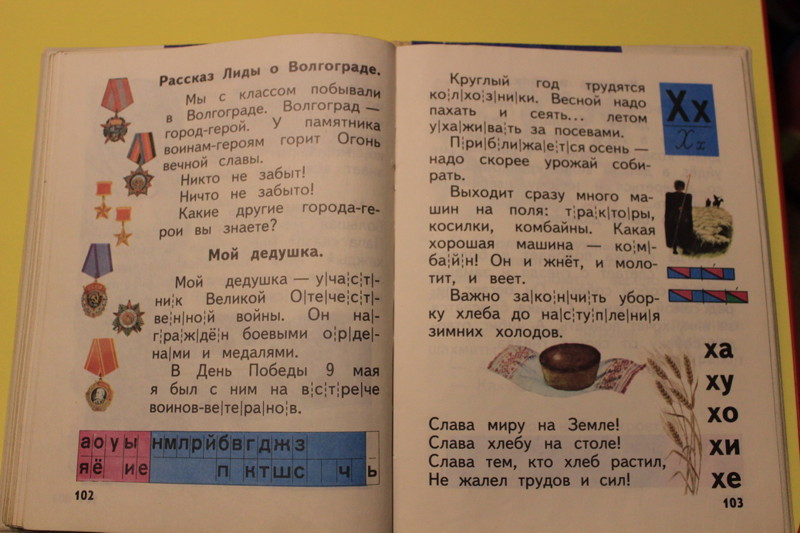 Рассказ Лиды о Волгограде.
Мы с классом побывали
в Волгограде. Волгоград —
город-герой. У памятника
воинам-героям горит Огонь
вечной славы.
Никто не забыт!
Ничто не забыто!
Какие другие города-ге-
рои вы знаете?
Мой дедушка.
Мой дедушка — у|ча|с|т|-
ни|к Великой О|те|че|с|т|-
ве|н|но|й войны. Он на|-
г|ра|ж|дё|н боевыми о|р|де|-
на|ми и медалями.
В День Победы 9 мая
я был с ним на в|с|т|ре|че
воинов-ве|те|ра|но|в.
а о у ы н м л р й б в г д ж з
я ё и е п к т ш с ч ь
102
Круглый год трудятся
ко|л|хо|з|ни|ки. Весной надо
пахать и сеять... летом
у|ха|жи|ва|ть за посевами.
П|ри|б|ли|жа|е|т|ся осень —
надо скорее урожай соби-
рать.
Выходит сразу много ма-
шин на поля: т|ра|к|то|ры,
косилки, комбайны. Какая
хорошая машина — ко|м|-
ба|й|н! Он и жнёт, и моло-
тит, и веет.
Важно за|ко|н|чи|ть убор-
ку хлеба до на|с|ту|п|ле|ни|я
зимних холодов.
Слава миру на Земле!
Слава хлебу на столе!
Слава тем, кто хлеб растил,
Не жалел трудов и сил!
Хх
Хх
ха
ху
хо
хи
хе
103